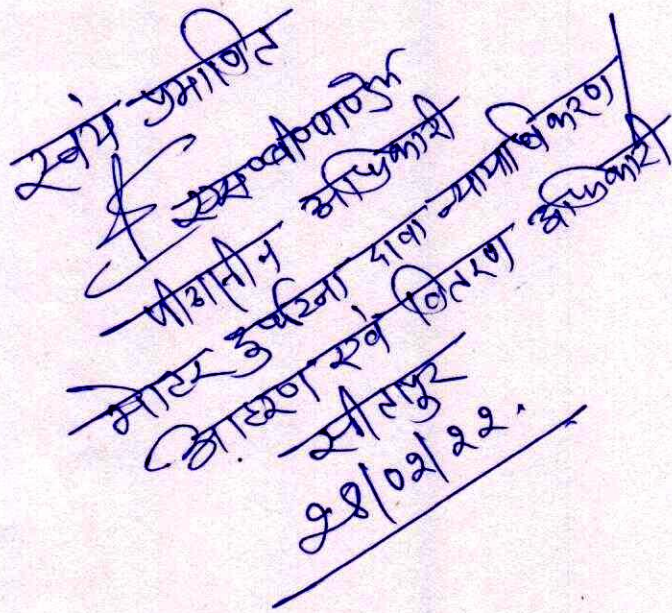 स्वंय प्रमाणित
एस०वी०पाण्डेय
पीठासीन अधिकारी
मोटर दुर्घटना दावा न्यायाधिकरण/
आहरण एवं वितरण अधिकारी
सीतापुर
28/02/22.